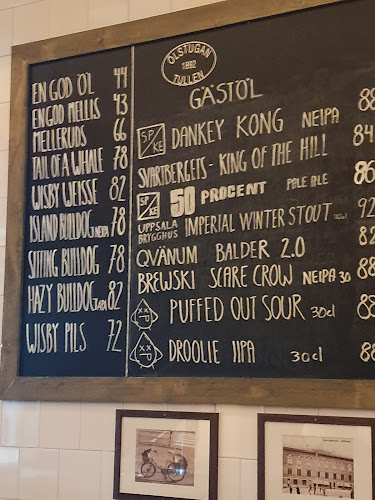 EN GOD ÖL 44
EN GOD MELLIS 43
MELLERUDS 66
TAIL OF A WHALE 78
WISBY WEISSE 82
ISLAND BULLDOG NEIPA 78
SITTING BULLDOG 78
HAZY BULLDOG 82
WISBY PILS 72
ÖLSTUGAN
1892
TULLEN
GÄSTÖL
SP/KE DANKEY KONG NEIPA 88
SVARTBERGETS - KING OF THE HILL 84
SP/KE 50 PROCENT PALE ALE 86
UPPSALA BRYGGHUS IMPERIAL WINTER STOUT 30cl 92
QVÄNUM BALDER 2.0 82
BREWSKI SCARE CROW NEIPA 30 88
PUFFED OUT SOUR 30cl 88
DROOLIE IIPA 30cl 88